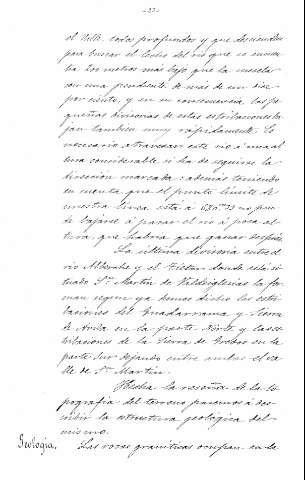 -22-
el Valle todos profundos y que descienden
para buscar el lecho del rio que se encuen-
tra 200 metros más bajo que la meseta
con una pendiente de más de un diez
por ciento, y en su consecuencia las pe-
queñas divisorias de estas estribaciones ba-
jan tambien muy rápidamente. Es
necesario atravesar este rio á una al
tura considerable si ha de seguirse la
direccion marcada ademas teniendo
en cuenta que el punto límite de
nuestra linea está á 630 no pue
de bajarse á pasar el rio á poca al
tura que habria que ganar despues.
La última divisoria entre el
rio Alberche y el Tietar donde está si
tuado Sn. Martin de Valdeiglesias la for
man segun ya hemos dicho las estri
baciones del Guadarrama y Sierra
de Avila en la parte Norte y las es
tribaciones de la Sierra de Gredos en la
parte Sur dejando entre ambas el va
lle de Sn. Martin.
Hecha la reseña de la to
pografia del terreno pasemos á des
cribir la estructura geológica del
mismo.
Geologia.
Las rocas graniticas ocupan en la